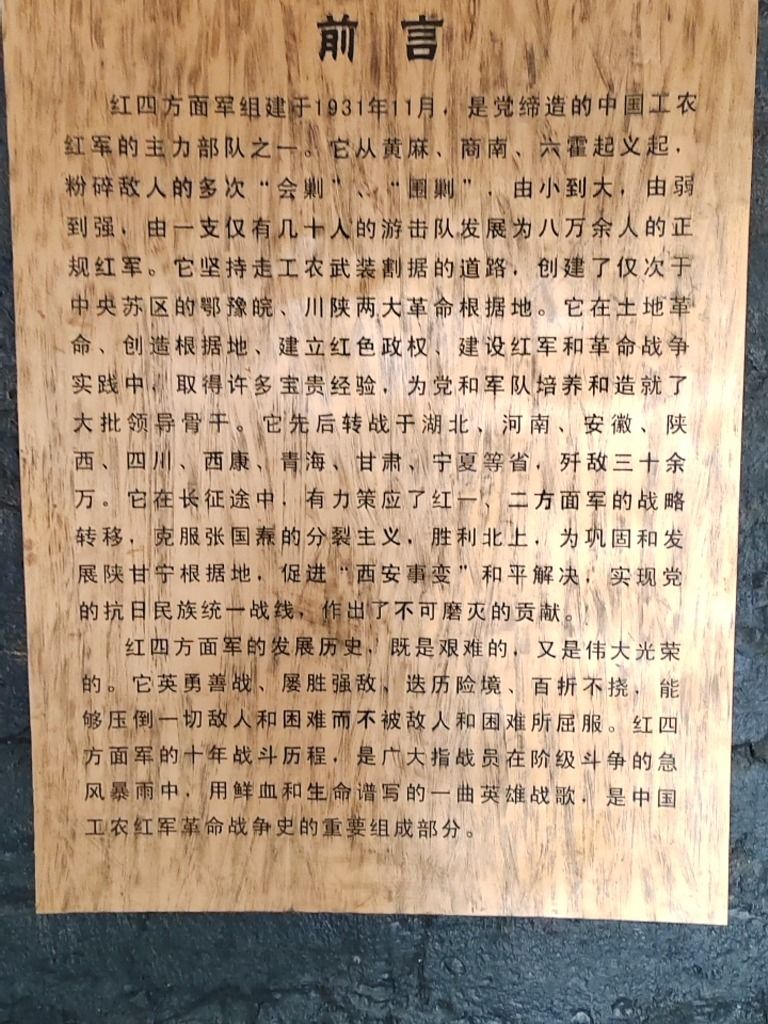 前言
红四方面军组建于1931年11月，是党缔造的中国工农
红军的主力部队之一。它从黄麻、商南、六霍起义起，
粉碎敌人的多次“会剿”、“围剿”，由小到大，由弱
到强，由一支仅有几十人的游击队发展为八万余人的正
规红军。它坚持走工农武装割据的道路，创建了仅次于
中央苏区的鄂豫皖、川陕两大革命根据地。它在土地革
命、创造根据地、建立红色政权、建设红军和革命战争
实践中，取得许多宝贵经验，为党和军队培养和造就了
大批领导骨干。它先后转战于湖北、河南、安徽、陕
西、四川、西康、青海、甘肃、宁夏等省，歼敌三十余
万。它在长征途中，有力策应了红一、二方面军的战略
转移，克服张国焘的分裂主义，胜利北上，为巩固和发
展陕甘宁根据地，促进“西安事变”和平解决，实现党
的抗日民族统一战线，作出了不可磨灭的贡献。
红四方面军的发展历史，既是艰难的，又是伟大光荣
的。它英勇善战、屡胜强敌、迭历险境、百折不挠，能
够压倒一切敌人和困难而不被敌人和困难所屈服。红四
方面军的十年战斗历程，是广大指战员在阶级斗争的急
风暴雨中，用鲜血和生命谱写的一曲英雄战歌，是中国
工农红军革命战争史的重要组成部分。